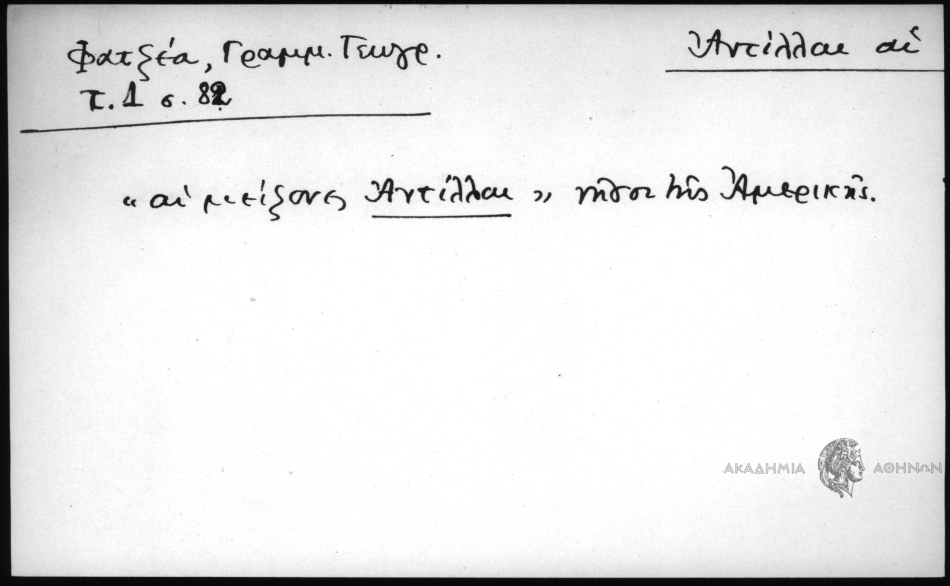 Φατζέα, Γραμμ. Γεωγρ.
Ἀντίλλαι αἱ
τ. 1 σ. 82
"αἱ μείζονες Ἀντίλλαι" νῆσοι τῆς Ἀμερικῆς.
ΑΚΑΔΗΜΙΑ ΑΘΗΝΩΝ